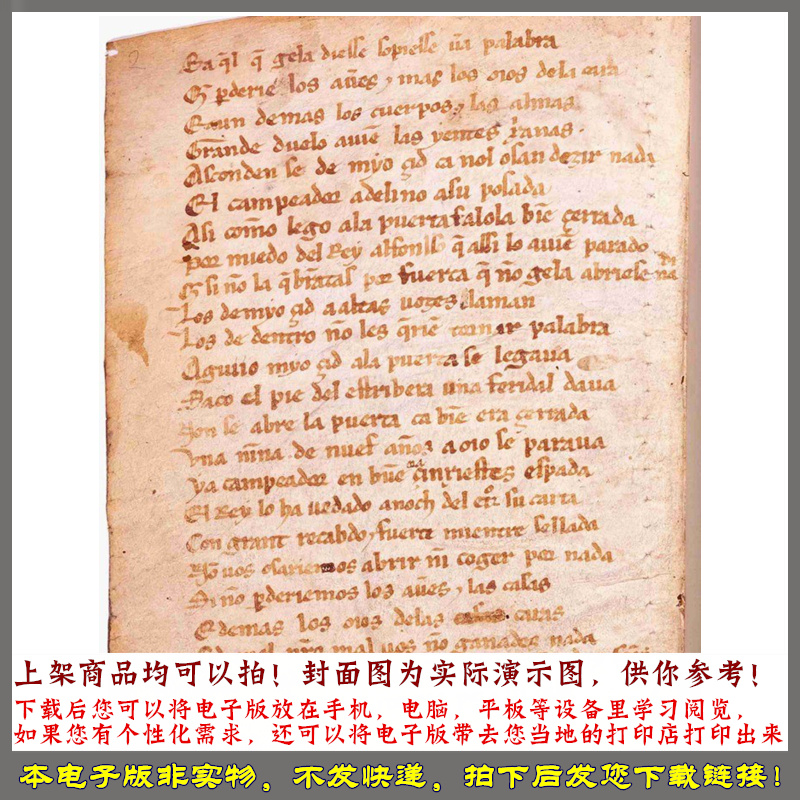 2
Ea q̃l q̃ gela diesse sopiesse ũa palabra
Q̃ ꝑderie los aũes ⁊ mas los oios dela cara
E aun demas los cuerpos ⁊ las almas
Grande duelo auiẽ las yentes xp̃anas
Asconden se de myo çid ca nol osan dezir nada
El campeador adelino asu posada
Asi commo lego ala puerta falola biẽ çerrada
Por miedo del Rey alfonsso q̃ assi lo auiẽ parado
Q̃ si nõ la q̃brãtas por fuerça q̃ nõ gela abriese
Los demyo çid a altas uozes laman
Los de dentro nõ les q̃riẽ tornar palabra
Aguijo myo çid ala puerta se legaua
Saco el pie del estribera una feridal daua
Non se abre la puerta ca biẽ era çerrada
Vna nĩna de nuef años a oio se paraua
ya campeador en buẽ çinxiestes espada
El Rey lo ha uedado anoch del etr̃o su carta
Con grant recabdo ⁊ fuerte mientre sellada
Nõ uos osariemos abrir nĩ coger por nada
Si nõ ꝑderiemos los aũes ⁊ las casas
E demas los oios delas caras
mal uos nõ ganades nada
上架商品均可以拍！封面图为实际演示图，供你参考！
下载后您可以将电子版放在手机，电脑，平板等设备里学习阅览，
如果您有个性化需求，还可以将电子版带去您当地的打印店打印出来
本电子版非实物，不发快递，拍下后发您下载链接！